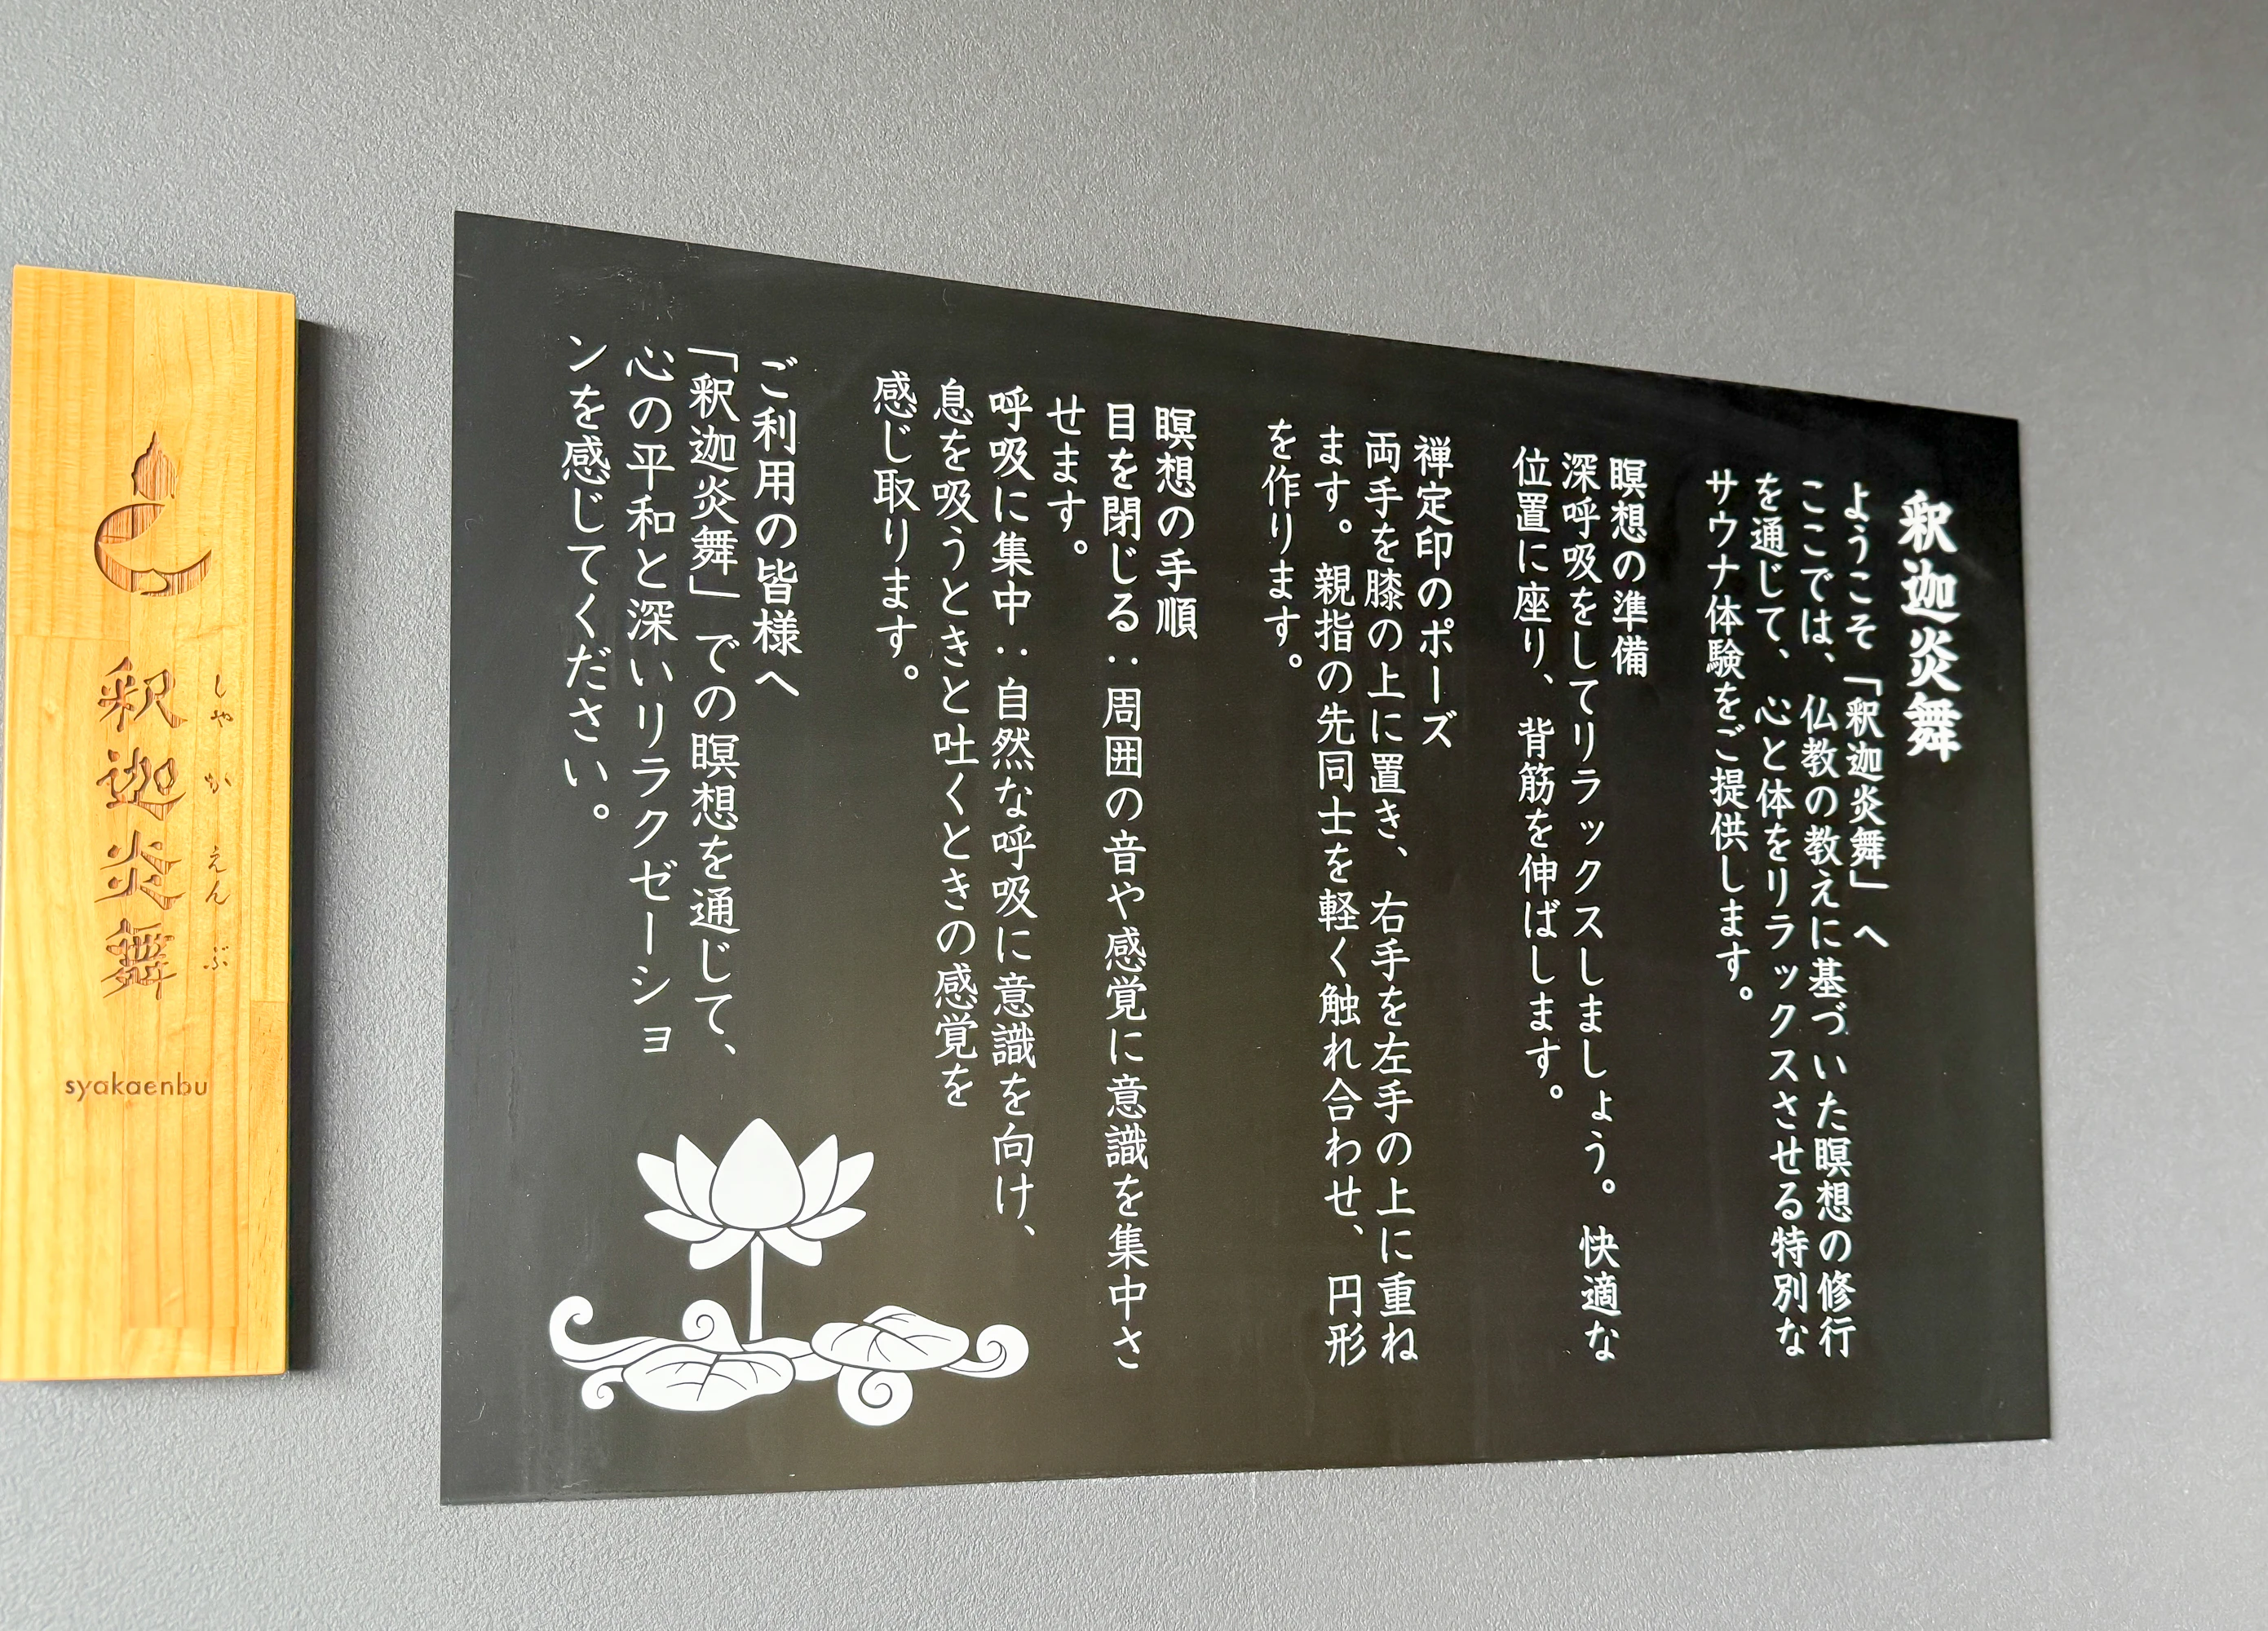 釈迦炎舞
ようこそ「釈迦炎舞」へ
ここでは、仏教の教えに基づいた瞑想の修行
を通じて、心と体をリラックスさせる特別な
サウナ体験をご提供します。
瞑想の準備
深呼吸をしてリラックスしましょう。快適な
位置に座り、背筋を伸ばします。
禅定印のポーズ
両手を膝の上に置き、右手を左手の上に重ね
ます。親指の先同士を軽く触れ合わせ、円形
を作ります。
瞑想の手順
目を閉じる：周囲の音や感覚に意識を集中さ
せます。
呼吸に集中：自然な呼吸に意識を向け、
息を吸うときと吐くときの感覚を
感じ取ります。
ご利用の皆様へ
「釈迦炎舞」での瞑想を通じて、
心の平和と深いリラクゼーショ
ンを感じてください。
しゃかえんぶ
釈迦炎舞
syakaenbu